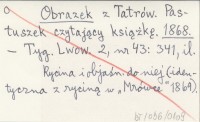 Obrazek z Tatrów. Pas-
tuszek czytający książkę. 1868.
— Tyg. Lwow. 2, nr 43: 341, il.
Rycina i objaśn. do niej (iden-
tyczna z ryciną w "Mrówce" 1869).